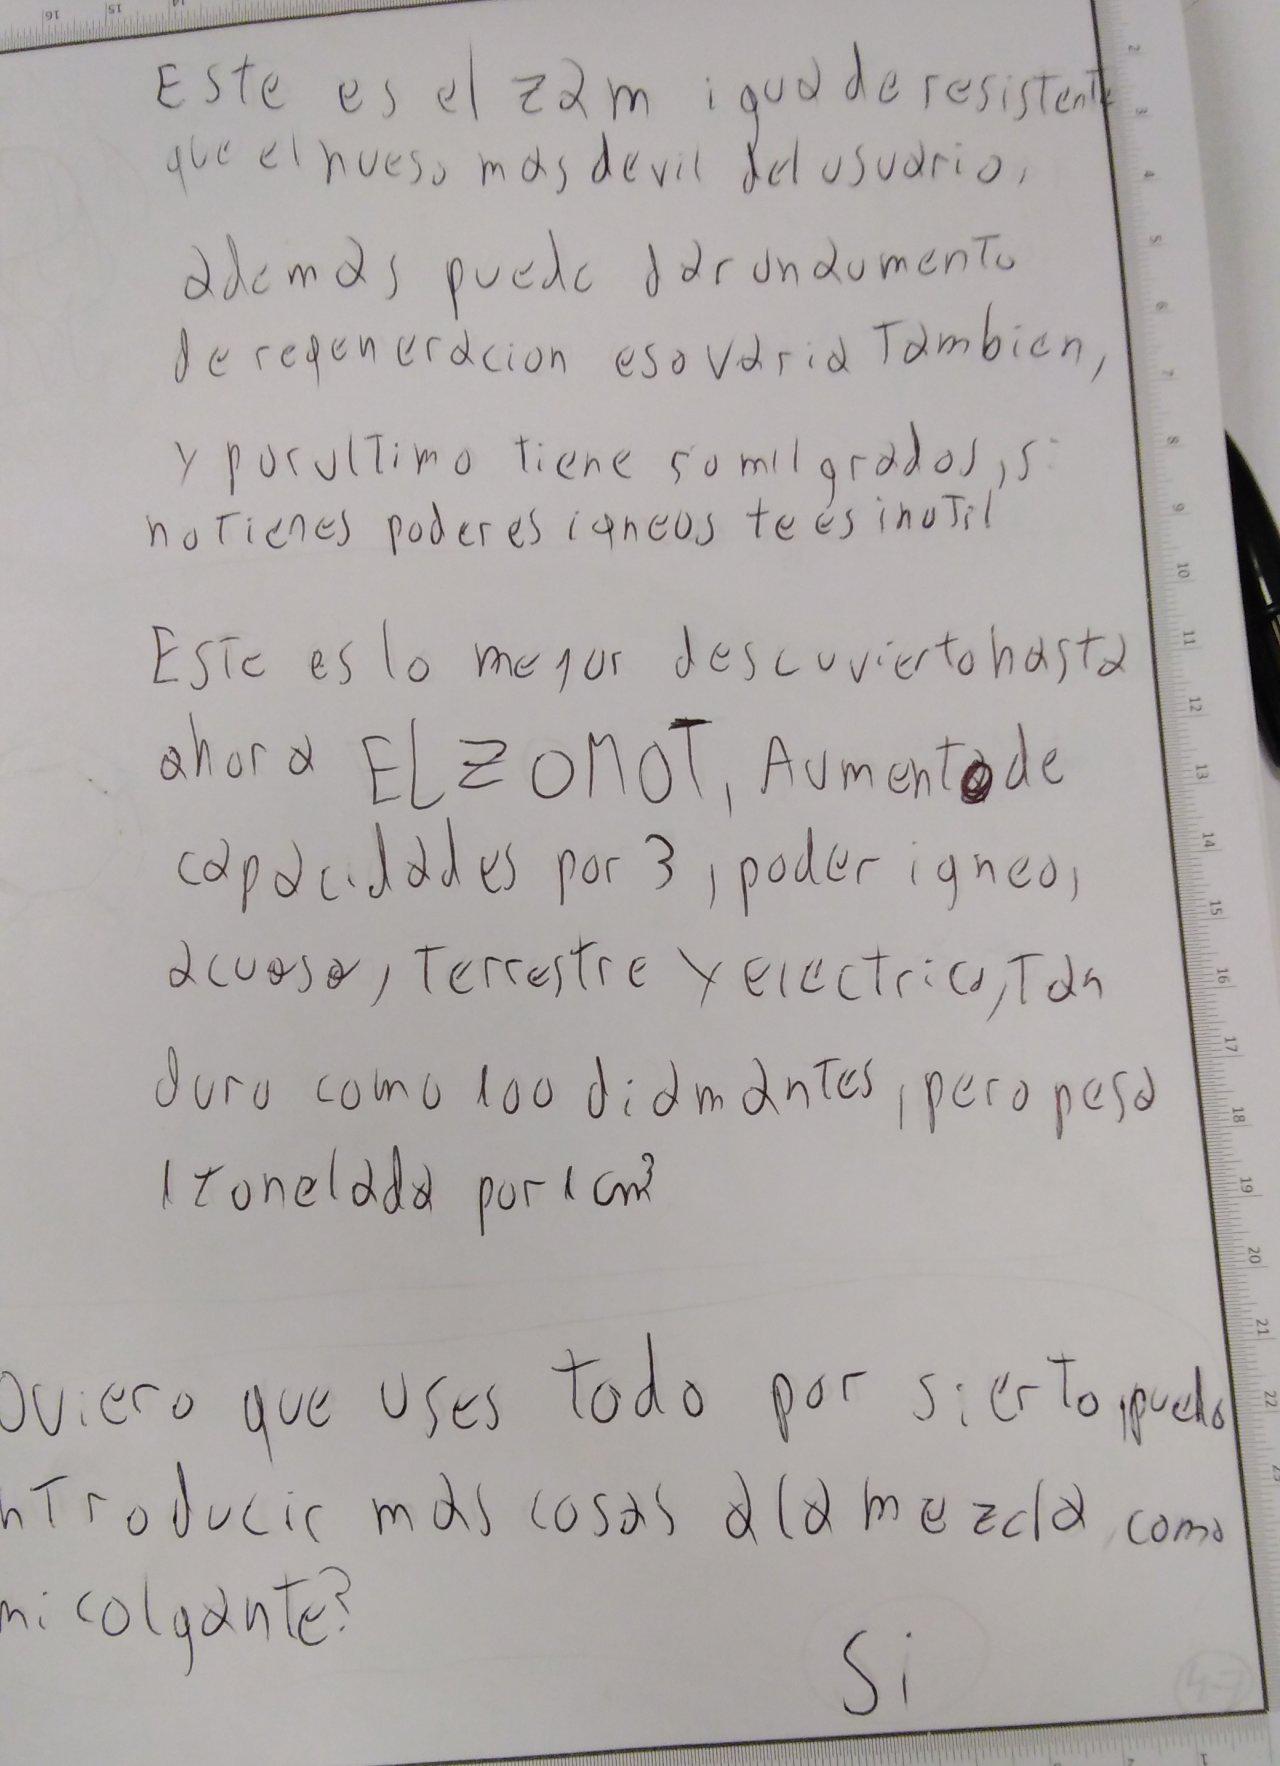 Este es el zam igua de resistente
que el hueso mas devil del usuario,
ademas puede dar un aumento
de regeneracion eso varia Tambien,
y por ulTimo tiene 50 mil grados, si
no Tienes poderes igneos te es inuTil
Este es lo mejor descuvierto hasta
ahora EL ZOMOT, Aumento de
capacidades por 3, poder igneo,
acuoso, Terrestre y electrico, Tan
duro como 100 diamantes, pero pesa
1 tonelada por 1 cm³
Quiero que uses todo por sierto, puedo
introducir mas cosas a la mezcla como
mi colgante?
Si